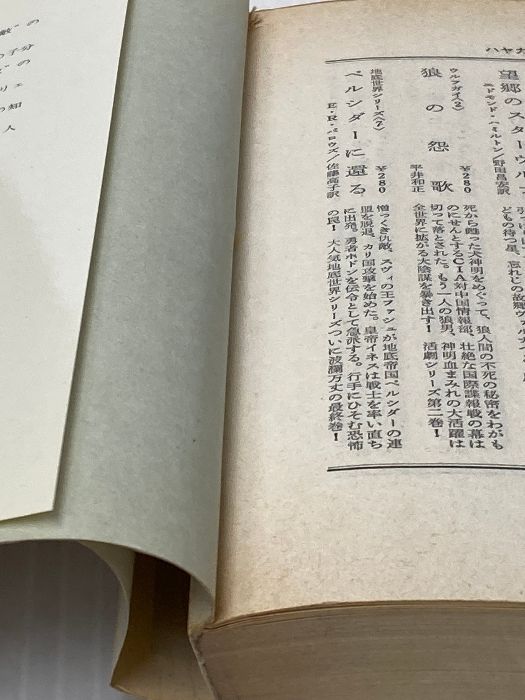 ハヤカ
望郷のスターウル
エドモンド・ハミルトン/野田昌宏訳
どもの待つ星、忘れじの故郷ヴァ
ウルフガイ〈2〉
狼の怨歌
¥280
平井和正
死から甦った犬神明をめぐって、狼人間の不死の秘密をわがも
のにせんとするCIA対中国情報部、壮絶な国際諜報戦の幕は
切って落とされた。もう一人の狼男、神明血まみれの大活躍は
全世界に拡がる大陰謀を暴き出す! 活劇シリーズ第二巻!
地底世界シリーズ〈7〉
ペルシダーに還る
¥280
E・R・バロウズ/佐藤高子訳
憎っくき仇敵、スヴィの王ファシュが地底帝国ペルシダーの連
盟を脱退、カリ国攻撃を始めた。皇帝イネスは戦士を率い直ち
に出発。勇者ホドンを伝令として急派する。行手にひそむ恐怖
の罠! 大人気地底世界シリーズついに波瀾万丈の最終巻!
の
の子分
の
リェ
の知
人